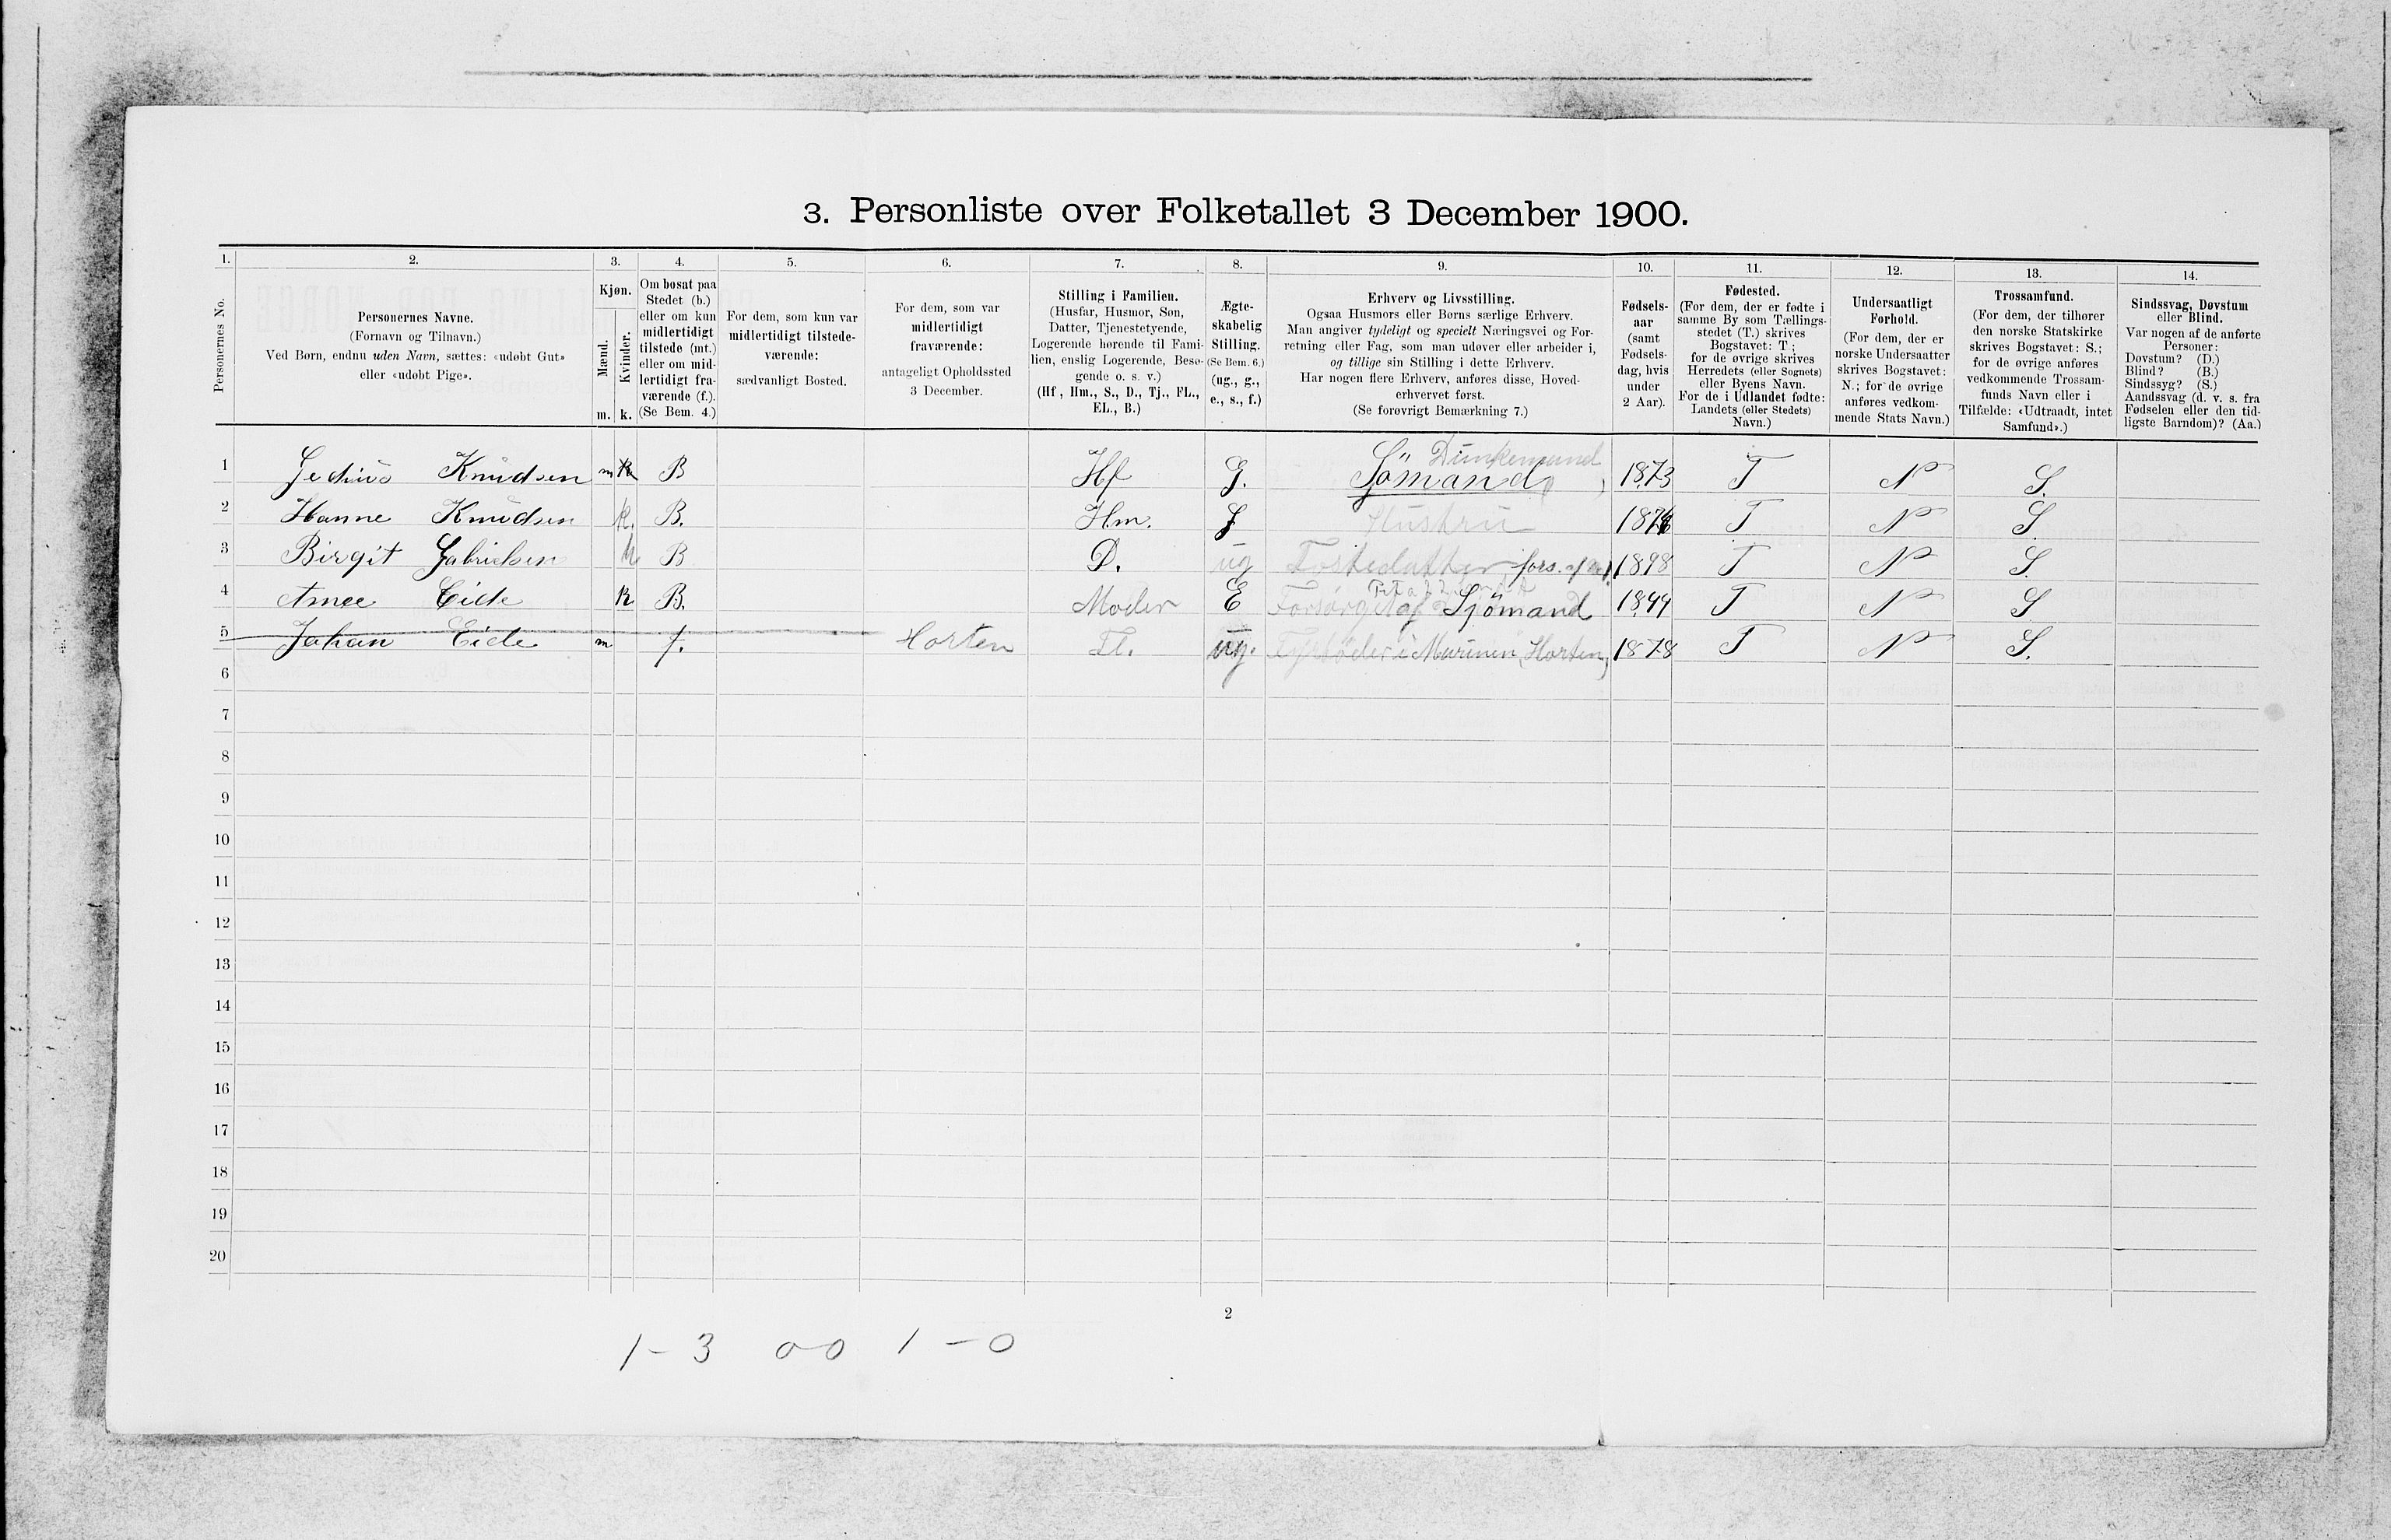 3. Personliste over Folketallet 3 December 1900.
1. 2. 3. 4. 5. 6. 7. 8. 9. 10. 11. 12. 13. 14.
Personernes No.
Personernes Navne.
(Fornavn og Tilnavn.)
Ved Børn, endnu uden Navn, sættes: «udøbt Gut»
eller «udøbt Pige».
Kjøn.
Mænd.
Kvinder.
m. k.
Om bosat paa
Stedet (b.)
eller om kun
midlertidigt
tilstede (mt.)
eller om mid-
lertidigt fra-
værende (f.).
(Se Bem. 4.)
For dem, som kun var
midlertidigt tilstede-
værende:
sædvanligt Bosted.
For dem, som var
midlertidigt
fraværende:
antageligt Opholdssted
3 December.
Stilling i Familien.
(Husfar, Husmor, Søn,
Datter, Tjenestetyende,
Logerende hørende til Fami-
lien, enslig Logerende, Besø-
gende o. s. v.)
(Hf, Hm., S., D., Tj., FL.,
EL., B.)
Ægte-
skabelig
Stilling.
(Se Bem. 6.)
(ug., g.,
e., s., f.)
Erhverv og Livsstilling.
Ogsaa Husmors eller Børns særlige Erhverv.
Man angiver tydeligt og specielt Næringsvei og For-
retning eller Fag, som man udøver eller arbeider i,
og tillige sin Stilling i dette Erhverv.
Har nogen flere Erhverv, anføres disse, Hoved-
erhvervet først.
(Se forøvrigt Bemærkning 7.)
Fødsels-
aar
(samt
Fødsels-
dag, hvis
under
2 Aar).
Fødested.
(For dem, der er fødte i
samme By som Tællings-
stedet (T.) skrives
Bogstavet: T;
for de øvrige skrives
Herredets (eller Sognets)
eller Byens Navn.
For de i Udlandet fødte:
Landets (eller Stedets)
Navn.)
Undersaatligt
Forhold.
(For dem, der er
norske Undersaatter
skrives Bogstavet:
N.; for de øvrige
anføres vedkom-
mende Stats Navn.)
Trossamfund.
(For dem, der tilhører
den norske Statskirke
skrives Bogstavet: S.;
for de øvrige anføres
vedkommende Trossam-
funds Navn eller i
Tilfælde: «Udtraadt, intet
Samfund».)
Sindssvag, Døvstum
eller Blind.
Var nogen af de anførte
Personer:
Døvstum? (D.)
Blind? (B.)
Sindssyg? (S.)
Aandssvag (d. v. s. fra
Fødselen eller den tid-
ligste Barndom)? (Aa.)
1 Knudsen m B Hf G. Sömand 1873 T N S.
2 Hanne Knudsen k. B. Hm. Hustru T N S.
3 Birgit Gabrielsen k B D. ug Fostedatter fors. af 1898 T N S.
4 Eide k B. Moder E Forsørget af Sjömand 1844 T N S
5 Johan Eide m f. Horten Fl. ug. Fyrbøder i Marinen, Horten, 1878 T N S.
6
7
8
9
10
11
12
13
14
15
16
17
18
19
20
2
1 - 3 00 1 - 0